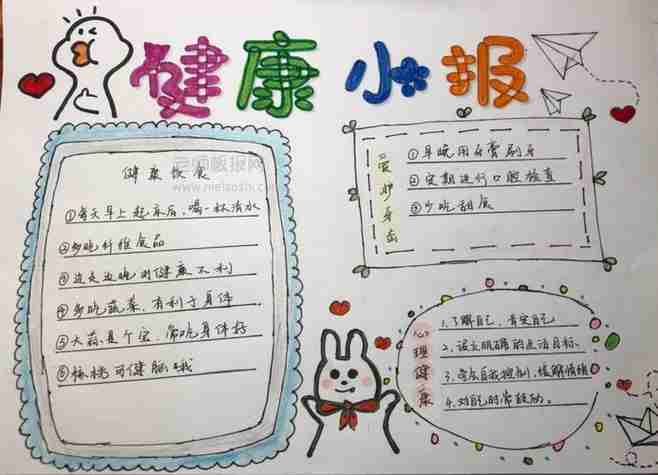 健康小报
老师板报网
健康饮食
①每天早上起床后，喝一杯清水
②多吃纤维食品
③边走边吃对健康不利
④多吃蔬菜，有利于身体
⑤大蒜是个宝，常吃身体好
⑥核桃可健脑哦
爱护牙齿
①早晚用牙膏刷牙
②定期进行口腔检查
③少吃甜食
心理健康
1.了解自己，肯定自己
2.设立明确的生活目标.
3.学会自我控制，缓解情绪
4.对自己常鼓励。